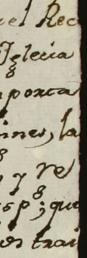 el Rec
Iglecia
mporta
ines, la
y re
esp; que
es trai